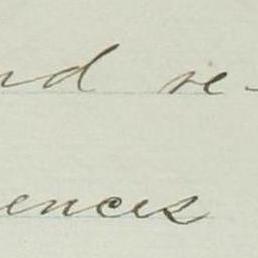 nd re-
ences